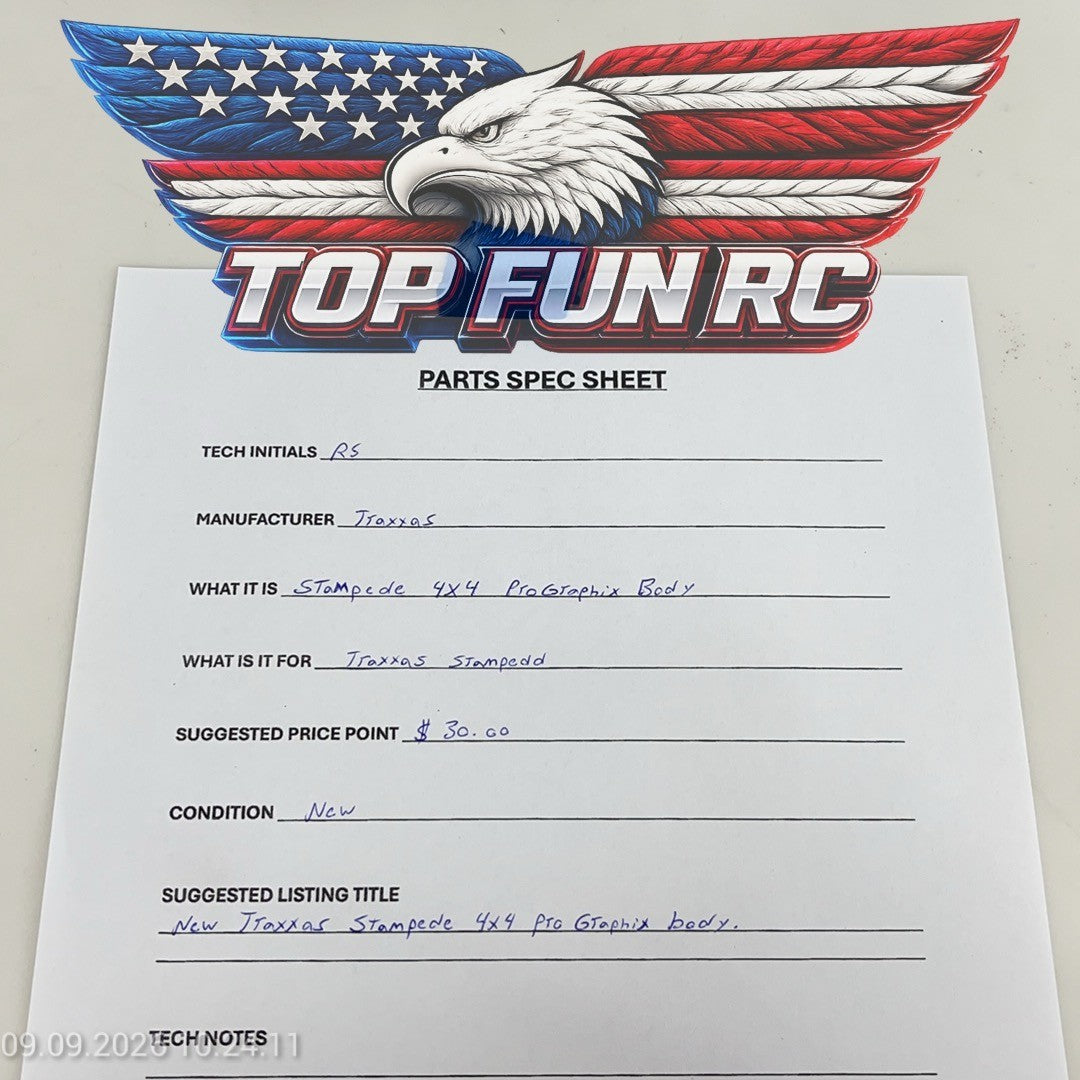 TOP FUN RC
PARTS SPEC SHEET
TECH INITIALS RS
MANUFACTURER Traxxas
WHAT IT IS Stampede 4x4 ProGraphix Body
WHAT IS IT FOR Traxxas Stampedd
SUGGESTED PRICE POINT $ 30.00
CONDITION New
SUGGESTED LISTING TITLE
New Traxxas Stampede 4x4 Pro Graphix body.
TECH NOTES